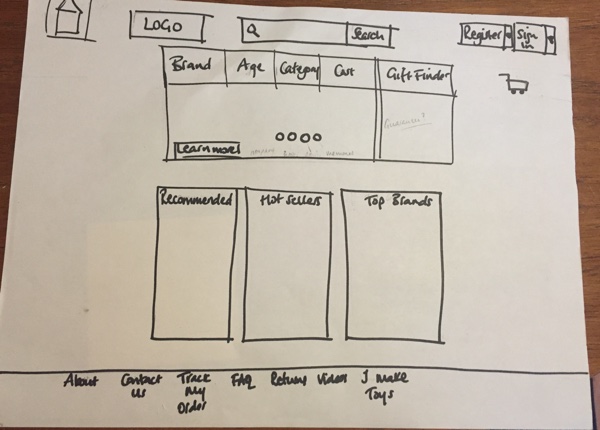 LOGO
Search
Register
Sign
in
Brand Age Category Cart Gift Finder
Learn more
Recommended Hot Sellers Top Brands
About Contact Track FAQ Returns Videos I make
us My Toys
Order